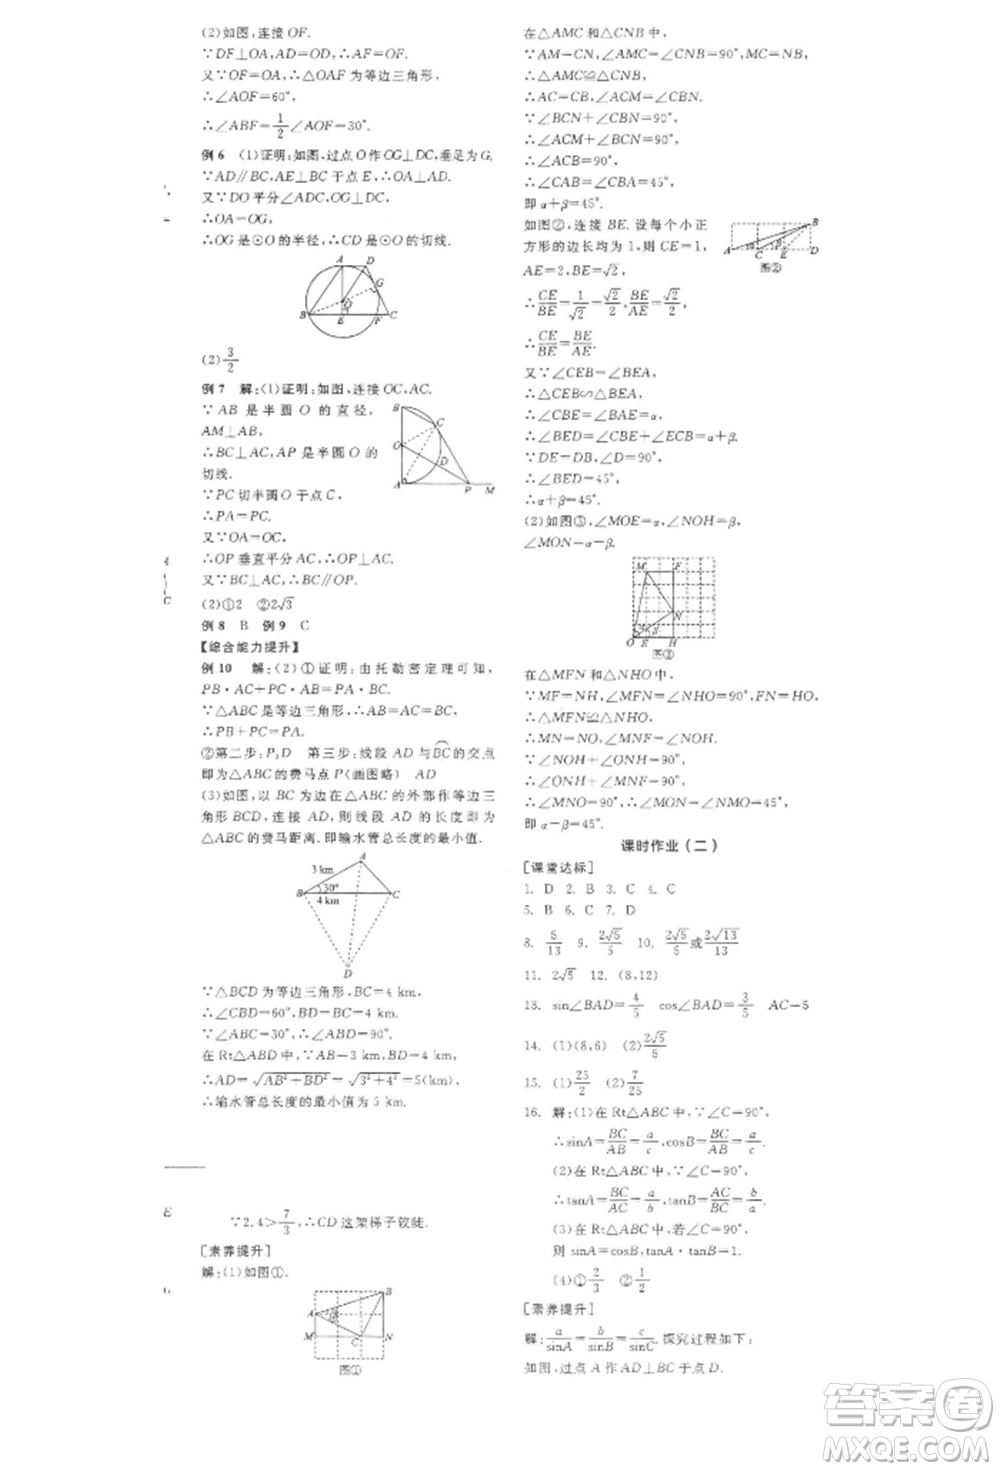 (2)如图,连接 OF.
∵DF⊥OA,AD=OD,∴AF=OF.
又∵OF=OA,∴△OAF为等边三角形,
∴∠AOF=60°,
∴∠ABF=1/2∠AOF=30°.
例 6 (1)证明:如图,过点 O 作 OG⊥DC,垂足为 G.
∵AD∥BC,AE⊥BC 于点 E,∴OA⊥AD.
又∵DO 平分∠ADC,OG⊥DC,
∴OA=OG,
∴OG 是⊙O 的半径,∴CD 是⊙O 的切线.
A D G O B E F C
(2)3/2
例 7 解:(1)证明:如图,连接 OC,AC.
∵ AB 是半圆 O 的直径,
AM⊥AB,
∴BC⊥AC,AP 是半圆 O 的
切线.
∵PC 切半圆 O 于点 C,
∴PA=PC.
又∵OA=OC,
∴OP 垂直平分 AC,∴OP⊥AC.
又∵BC⊥AC,∴BC∥OP.
B C O D A P M
(2)①2 ②2√3
例 8 B 例 9 C
【综合能力提升】
例 10 解:(2)①证明:由托勒密定理可知,
PB·AC+PC·AB=PA·BC.
∵△ABC 是等边三角形,∴AB=AC=BC,
∴PB+PC=PA.
②第二步:P,D 第三步:线段 AD 与BC的交点
即为△ABC的费马点 P(画图略) AD
(3)如图,以 BC 为边在△ABC 的外部作等边三
角形 BCD,连接 AD,则线段 AD 的长度即为
△ABC 的费马距离,即输水管总长度的最小值.
A 3 km B 30° C 4 km D
∵△BCD 为等边三角形,BC=4 km,
∴∠CBD=60°,BD=BC=4 km.
∵∠ABC=30°,∴∠ABD=90°.
在 Rt△ABD 中,∵AB=3 km,BD=4 km,
∴AD=√AB²+BD²=√3²+4²=5(km),
∴输水管总长度的最小值为 5 km.
∵2.4>7/3,∴CD 这架梯子较陡.
[素养提升]
解:(1)如图①.
B A M C N
图①
在△AMC 和△CNB 中,
∵AM=CN,∠AMC=∠CNB=90°,MC=NB,
∴△AMC≌△CNB,
∴AC=CB,∠ACM=∠CBN.
∵∠BCN+∠CBN=90°,
∴∠ACM+∠BCN=90°,
∴∠ACB=90°,
∴∠CAB=∠CBA=45°,
即 α+β=45°.
如图②,连接 BE. 设每个小正
方形的边长均为 1,则 CE=1,
AE=2,BE=√2,
∴CE/BE=1/√2=√2/2,BE/AE=√2/2,
∴CE/BE=BE/AE.
又∵∠CEB=∠BEA,
∴△CEB∽△BEA,
∴∠CBE=∠BAE=α,
∴∠BED=∠CBE+∠ECB=α+β.
∵DE=DB,∠D=90°,
∴∠BED=45°,
∴α+β=45°.
A C E D B
图②
(2)如图③,∠MOE=α,∠NOH=β,
∠MON=α-β.
M F N O E H
图③
在△MFN 和△NHO 中,
∵MF=NH,∠MFN=∠NHO=90°,FN=HO,
∴△MFN≌△NHO,
∴MN=NO,∠MNF=∠NOH.
∵∠NOH+∠ONH=90°,
∴∠ONH+∠MNF=90°,
∴∠MNO=90°,∴∠MON=∠NMO=45°,
即 α-β=45°.
课时作业(二)
[课堂达标]
1. D 2. B 3. C 4. C
5. B 6. C 7. D
8. 5/13 9. 2√5/5 10. 2√5/5或2√13/13
11. 2√5 12. (8,12)
13. sin∠BAD=4/5 cos∠BAD=3/5 AC=5
14. (1)(8,6) (2)2√5/5
15. (1)25/2 (2)7/25
16. 解:(1)在 Rt△ABC 中,∵∠C=90°,
∴sinA=BC/AB=a/c,cosB=BC/AB=a/c.
(2)在 Rt△ABC 中,∵∠C=90°,
∴tanA=BC/AC=a/b,tanB=AC/BC=b/a.
(3)在 Rt△ABC 中,若∠C=90°,
则 sinA=cosB,tanA·tanB=1.
(4)①2/3 ②1/2
[素养提升]
解:a/sinA=b/sinB=c/sinC. 探究过程如下:
如图,过点 A 作 AD⊥BC 于点 D.
答案卷
MXQE.COM